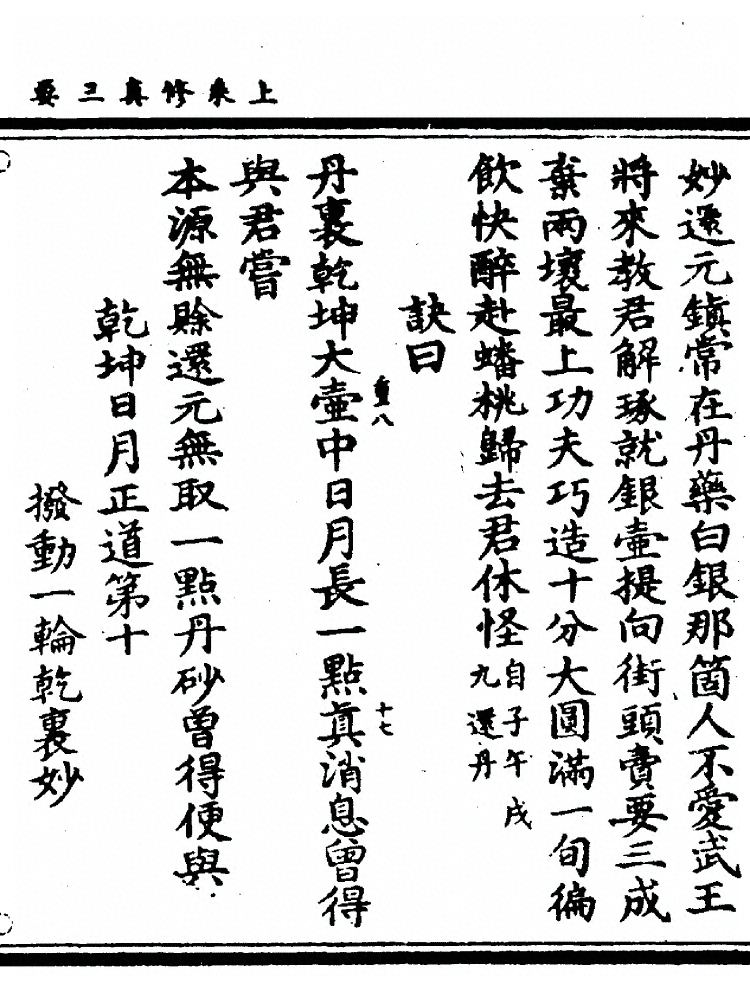 上乘修真三要
妙還元鎮常在丹藥白銀那箇人不愛武王
將來教君解琢就銀壺提向街頭賣要三成
棄兩壞最上功夫巧造十分大圓滿一旬徧
飲快醉赴蟠桃歸去君休怪自子午戌九還丹
訣曰
重八 十七
丹裏乾坤大壺中日月長一點真消息曾得
與君嘗
本源無賒還元無取一點丹砂曾得便與
乾坤日月正道第十
撥動一輪乾裏妙